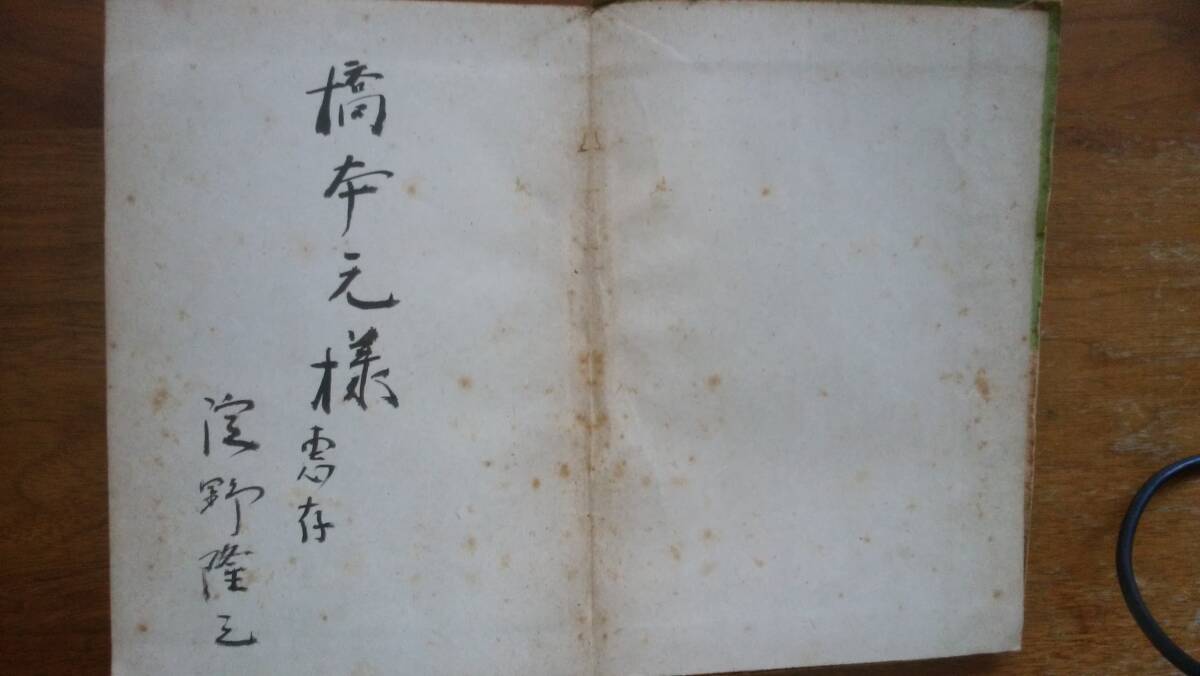 橋本元様
恵存
淀野隆三